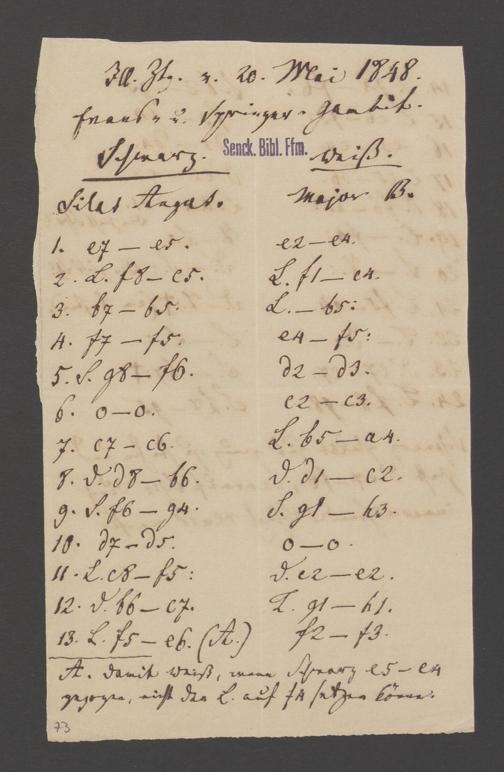 Ill. Ztg. v. 20. Mai 1848.
Franz. 2. Springer-Gambit.
Schwarz. Senck. Bibl. Ffm. Weiß.
Silas Angas. Major B.
1. e7 — e5. e2 — e4.
2. L. f8 — c5. L. f1 — c4.
3. b7 — b5: L. — b5:
4. f7 — f5: e4 — f5:
5. S. g8 — f6. d2 — d3.
6. o — o. c2 — c3.
7. c7 — c6. L. b5 — a4.
8. D. d8 — b6. D. d1 — c2.
9. S. f6 — g4. S. g1 — h3.
10. d7 — d5. o — o.
11. L. c8 — f5: D. c2 — e2.
12. D. b6 — c7. K. g1 — h1.
13. L. f5 — e6. (A.) f2 — f3.
A. damit Weiß, wenn Schwarz e5 — e4
gezogen, nicht den L. auf f4 setzen könne.
73